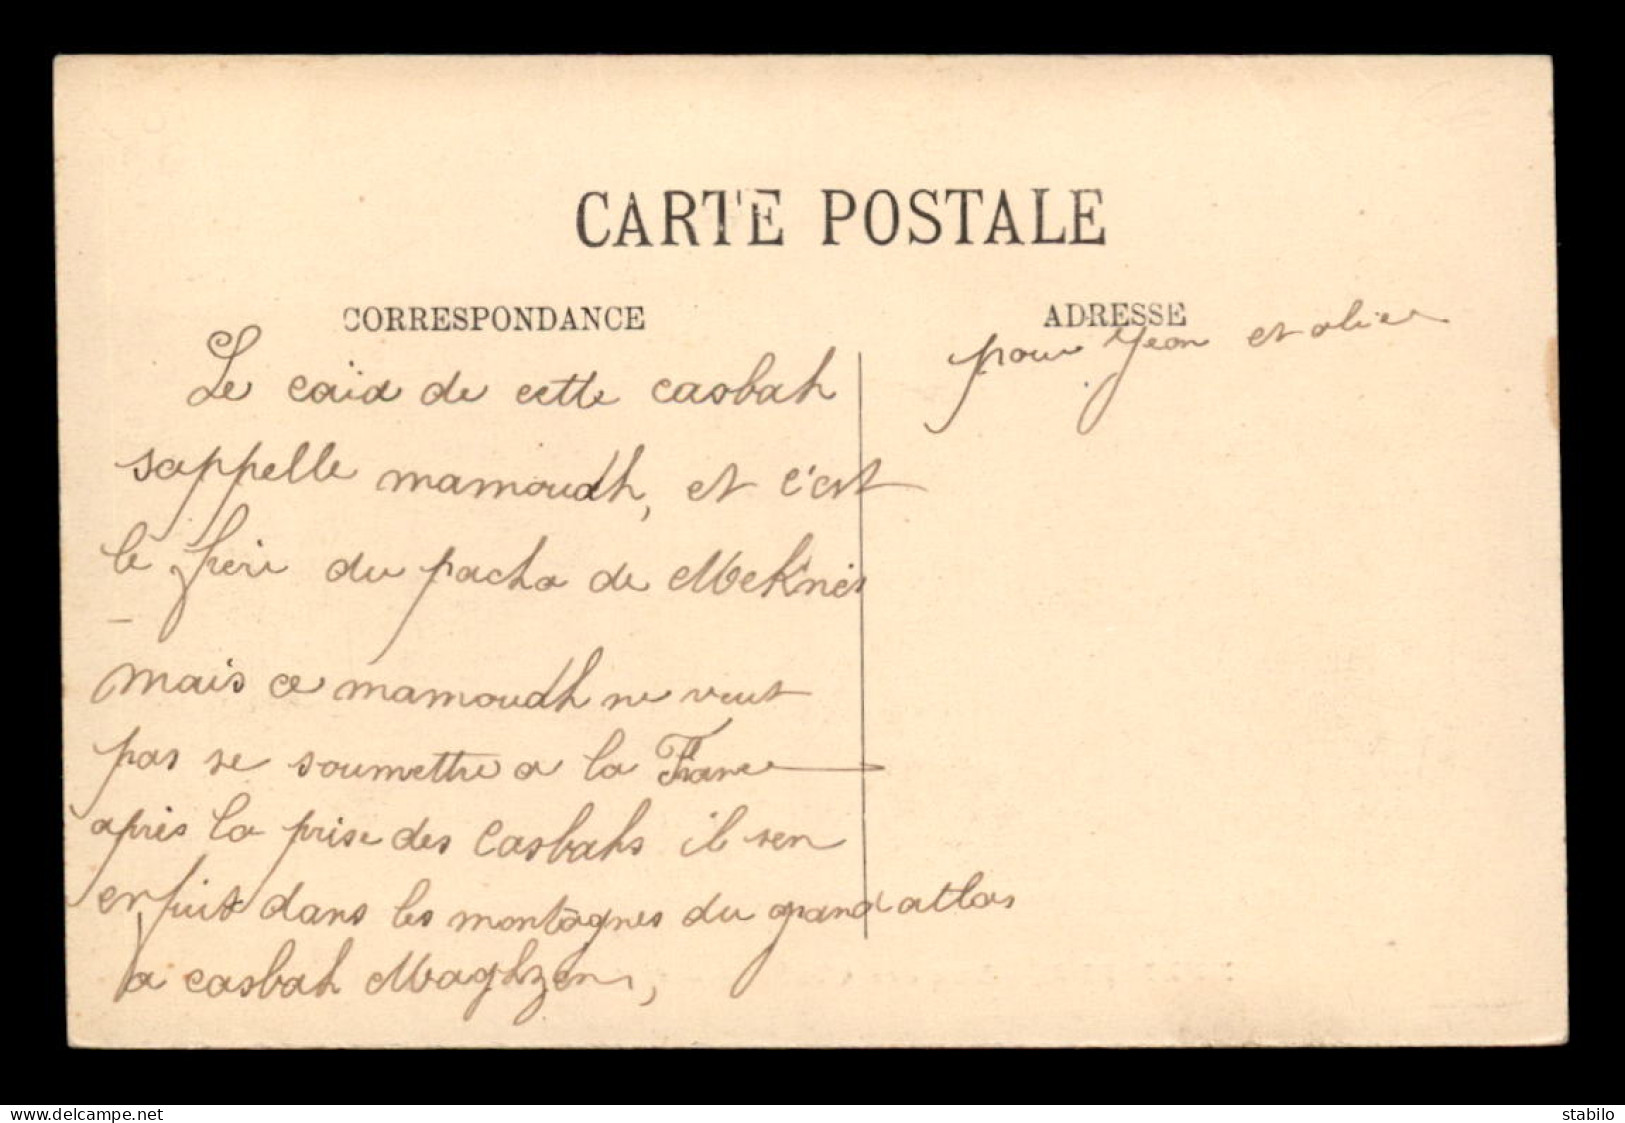 CARTE POSTALE
CORRESPONDANCE
ADRESSE
pour Jean et alice
Le caïd de cette casbah
sappelle mamoudh, et c'est
le frère du pacha de Meknès
mais ce mamoudh ne veut
pas se soumettre a la France
après la prise des Casbahs il sen
enfuit dans les montagnes du grand atlas
a casbah Maghzen,
www.delcampe.net
stabilo